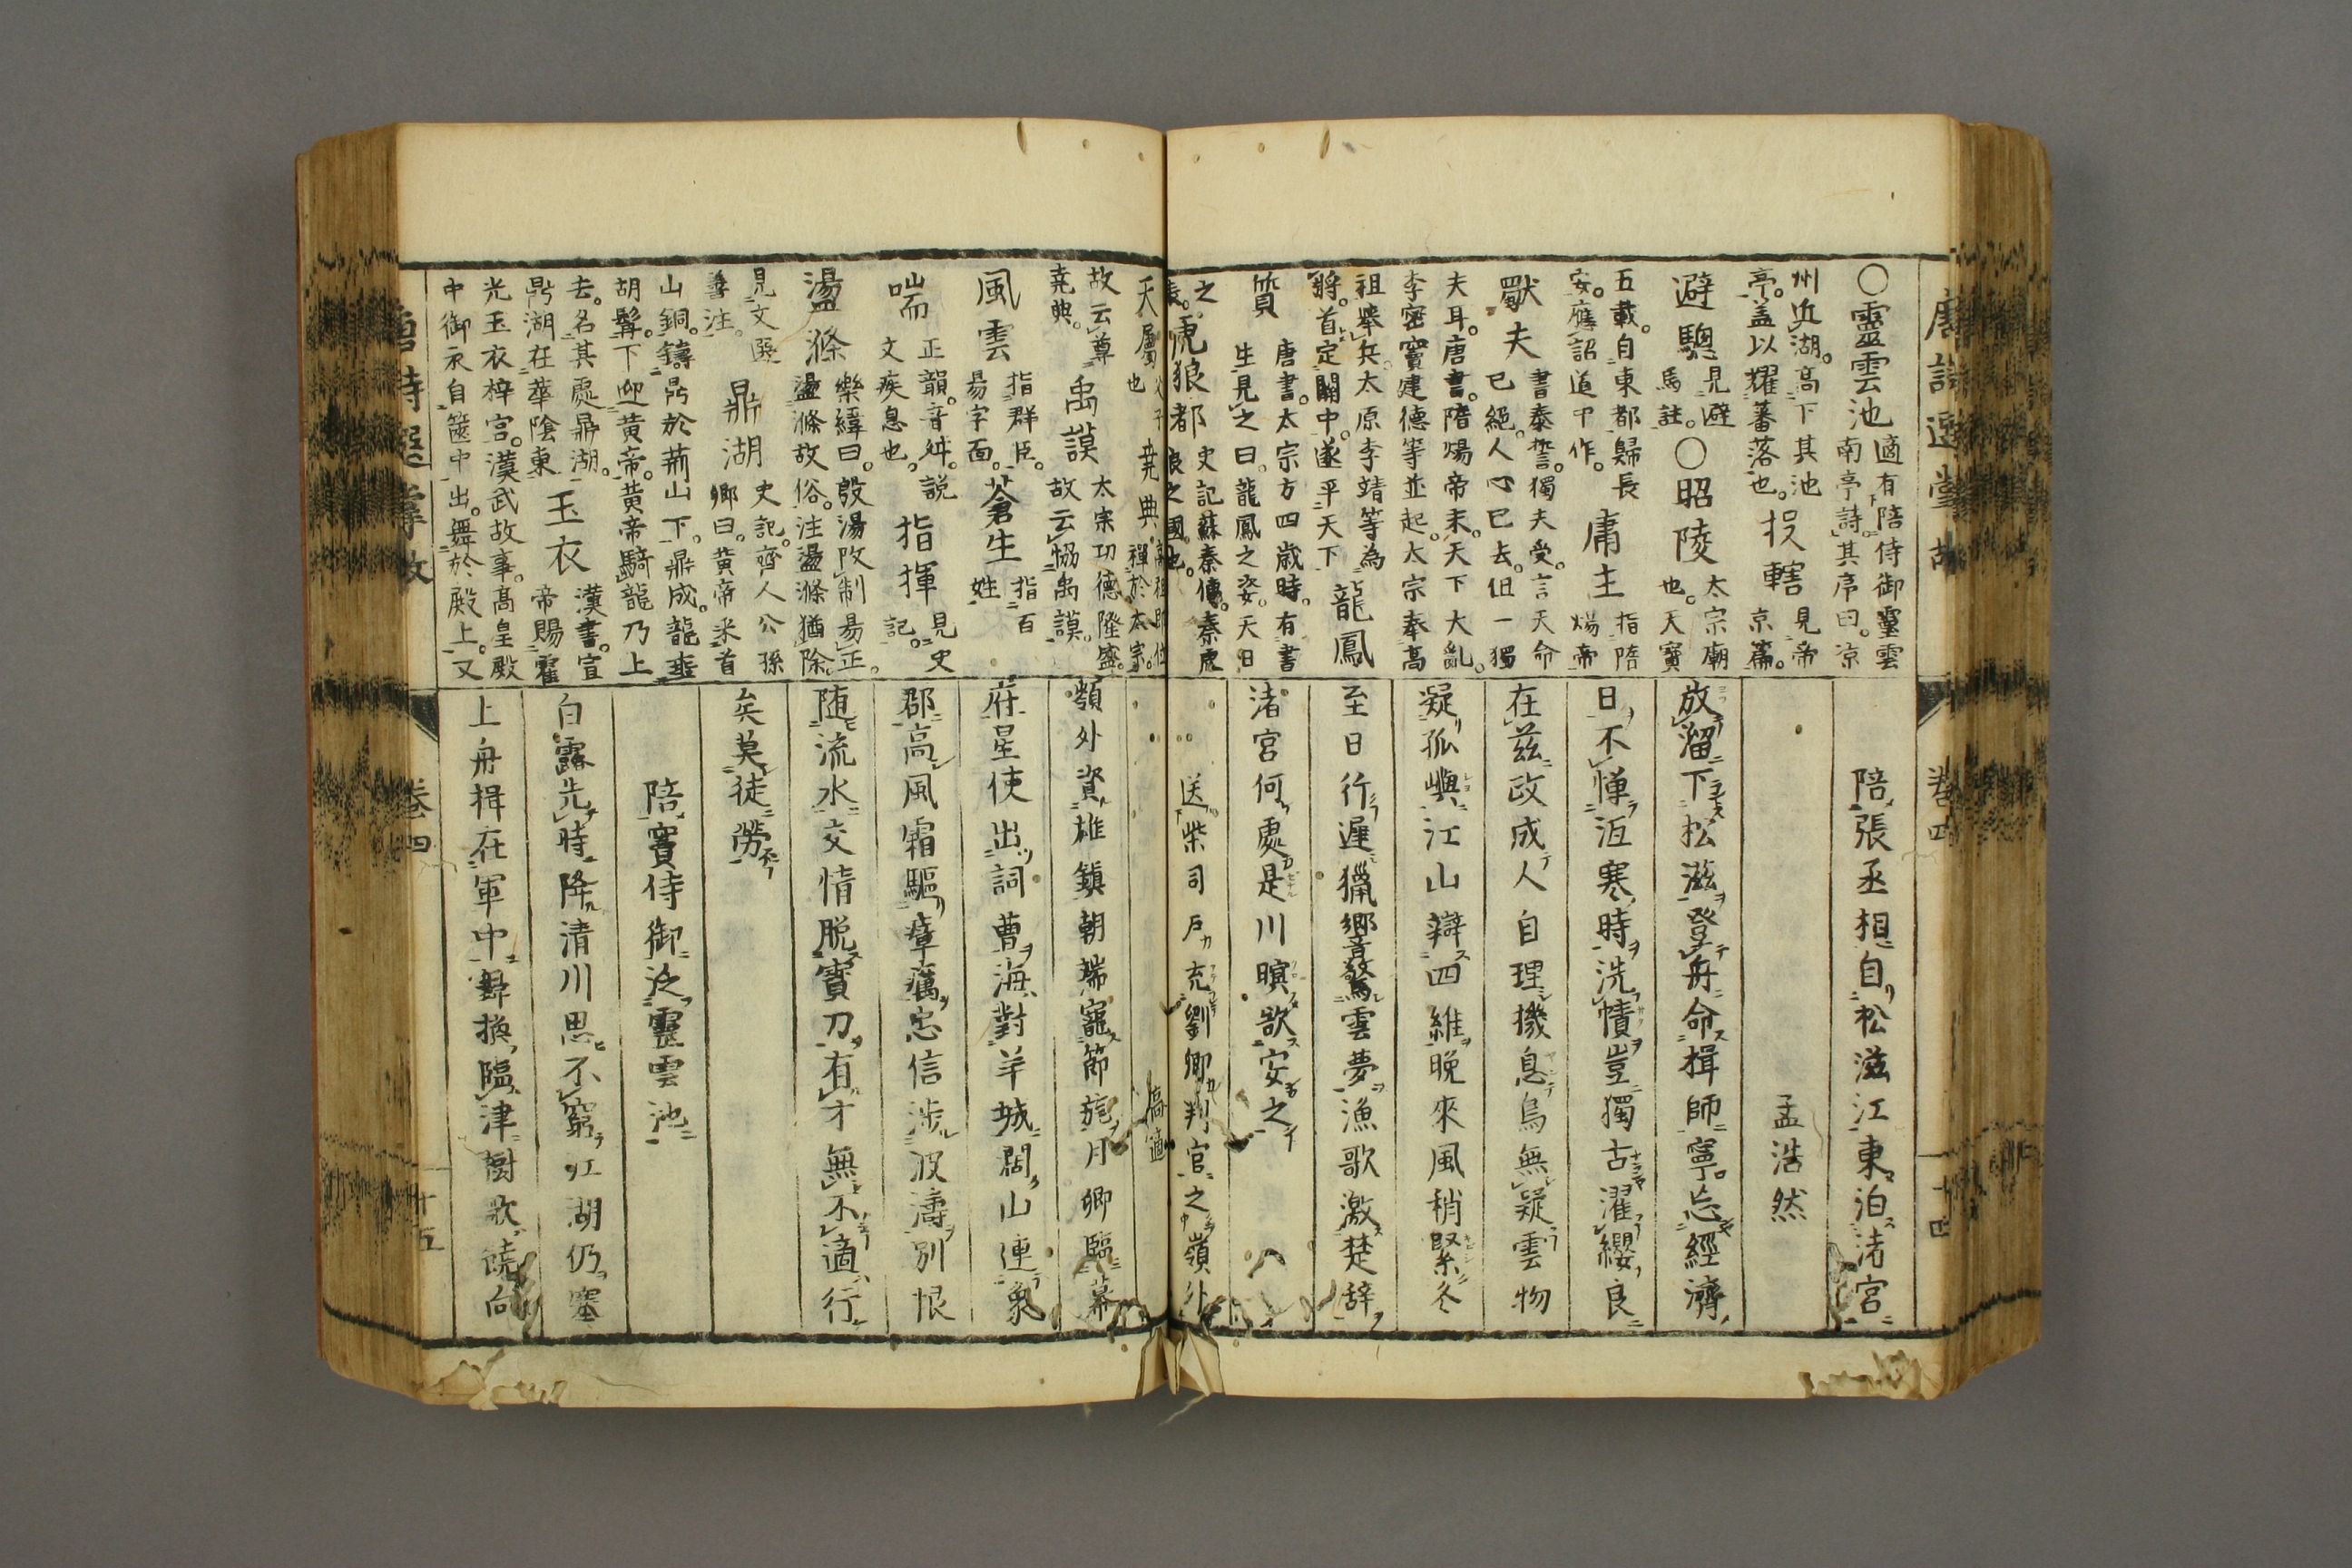 唐詩選掌故
卷四
十四
○靈雲池 適有陪侍御靈雲
南亭詩其序曰涼
州近湖。高下其池
亭。蓋以耀蕃落也。 投轄 見帝
京篇。
避驄 見避
馬註。 ○昭陵 太宗廟
也。天寶
五載。自東都歸長
安。應詔道中作。 庸主 指隋
煬帝
獸夫 書泰誓。獨夫受。言天命
已絕。人心已去。但一獨
夫耳。唐書。隋煬帝末。天下大亂。
李密竇建德等並起。太宗奉高
祖舉兵。太原李靖等為
將。首定關中。遂平天下 龍鳳
質 唐書。太宗方四歲時。有書
生見之曰。龍鳳之姿。天日
之
表。 虎狼都 史記蘇秦傳。秦虎
狼之國也。
陪張丞相自松滋江東泊渚宮
孟浩然
放溜下松滋登舟命楫師寧忘經濟
日不憚沍寒時洗幘豈獨古濯纓良
在茲政成人自理機息鳥無疑雲物
凝孤嶼江山辯四維晚來風稍緊冬
至日行遲獵響驚雲夢漁歌激楚辭
渚宮何處是川暝欲安之
送柴司戶充劉卿判官之嶺外
高適
天屬 父子
也 堯典 高祖即位
禪於太宗。
故云尊
堯典。 禹謨 太宗功德隆盛。
故云協禹謨。
風雲 指群臣。
易字面。 蒼生 指百
姓
喘 正韻。音舛。說
文疾息也。 指揮 見史
記。
盪滌 樂緯曰。殷湯改制易正。
盪滌故俗。注盪滌猶除
見文選
善注。 鼎湖 史記。齊人公孫
卿曰。黃帝采首
山銅。鑄鼎於荊山下。鼎成。龍垂
胡髯。下迎黃帝。黃帝騎龍乃上
去。名其處鼎湖。
鼎湖在華陰東 玉衣 漢書。宣
帝賜霍
光玉衣梓宮。漢武故事。高皇殿
中御衣自篋中出。舞於殿上。又
嶺外資雄鎮朝端寵節旄月卿臨幕
府星使出詞曹海對羊城闊山連象
郡高風霜驅瘴癘忠信涉波濤別恨
隨流水交情脫寶刀有才無不適行
矣莫徒勞
陪竇侍御泛靈雲池
白露先時降清川思不窮江湖仍塞
上舟楫在軍中舞換臨津樹歌饒向
唐詩選掌故
卷四
十五